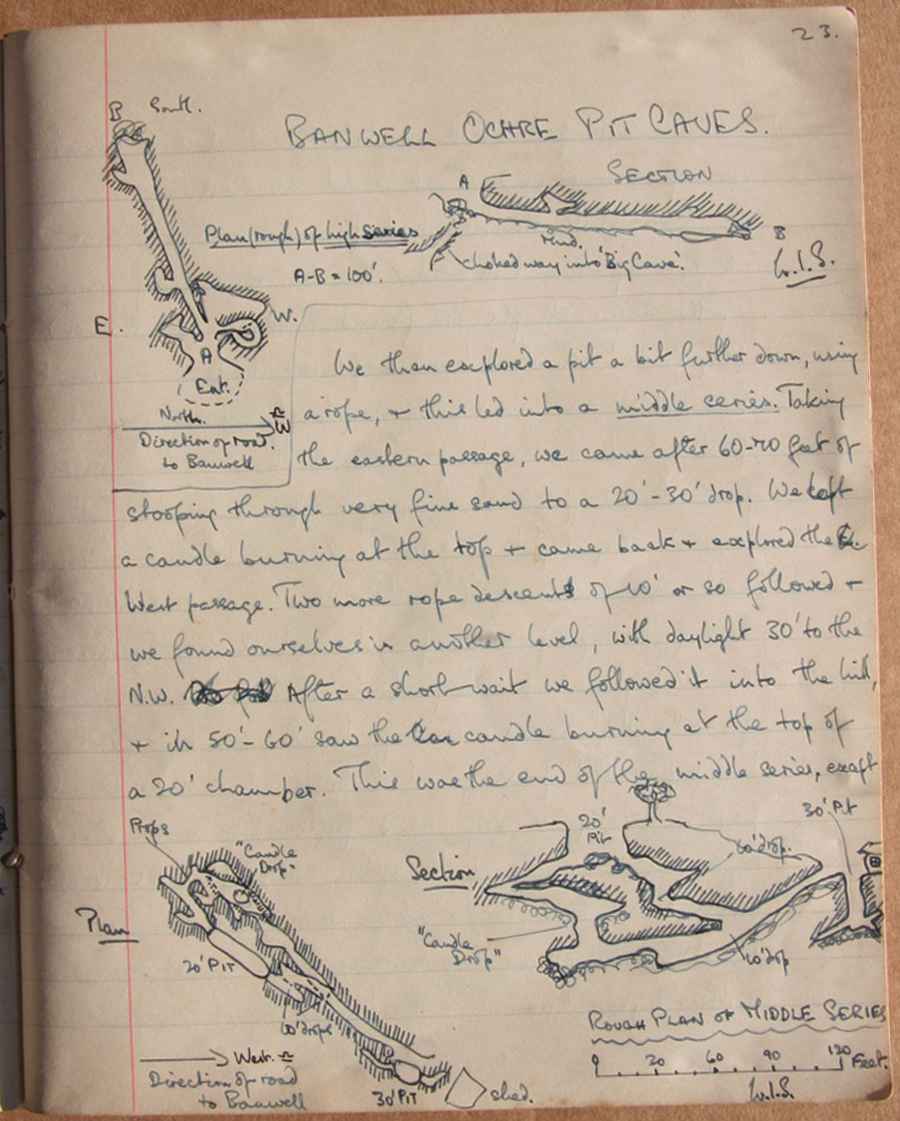 23.
BANWELL OCHRE PIT CAVES.
B South.
SECTION
A
Plan (rough) of high series
A-B = 100'.
Mud.
B
choked way into 'Big Cave'.
W.I.S.
E.
W.
A
Ent.
North.
W
Direction of road.
to Banwell
We then explored a pit a bit further down, using
a rope, + this led into a middle series. Taking
the eastern passage, we came after 60-70 feet of
stooping through very fine sand to a 20'-30' drop. We left
a candle burning at the top + came back + explored the
West passage. Two more rope descents of 10' or so followed +
we found ourselves in another level, with daylight 30' to the
N.W. After a short wait we followed it into the hill,
+ in 50'-60' saw the candle burning at the top of
a 20' chamber. This was the end of the middle series, except
Props
"Candle
Drop"
Plan
20' PIT
10' drops
West.
Direction of road
to Banwell
30' PIT
shed.
Section
20'
Pit
10' drop.
30' Pit
"Candle
Drop"
10' drop
ROUGH PLAN OF MIDDLE SERIES
0 20 60 90 120 Feet.
W.I.S.